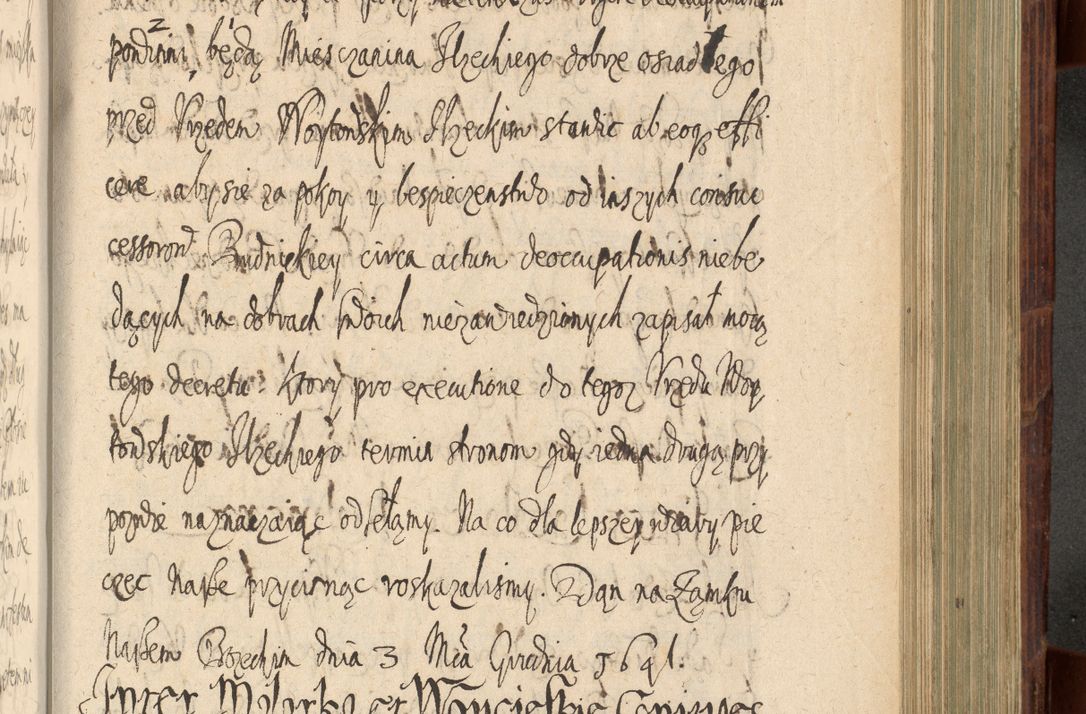 powinni będą Miesczanina Iłzeckiego dobrze osiadłego
przed Vrzędem Woytowskim Iłzeckim stawic ab eoq₃ effi
cere aby się za pokoy y bespieczenstwo od inszych consuc
cessorow Budnickiey circa actum deoccupationis niebe
dących na dobrach swoich niezawiedzionych zapisał mocą
tego decretu. Ktory pro executione do tegoz Vrzędu Woy
towskiego Iłzeckiego termin stronom gdy iedna drugą przy
pozwie naznaczaiąc odsełamy. Na co dla lepszey wiary pie
częc Naszę przycisnąc roskazalismy. Dan na Zamku
Naszem Iłzeckim dnia 3 Mca Grudnia 1641.
Inter et Woycieskie Coniuges